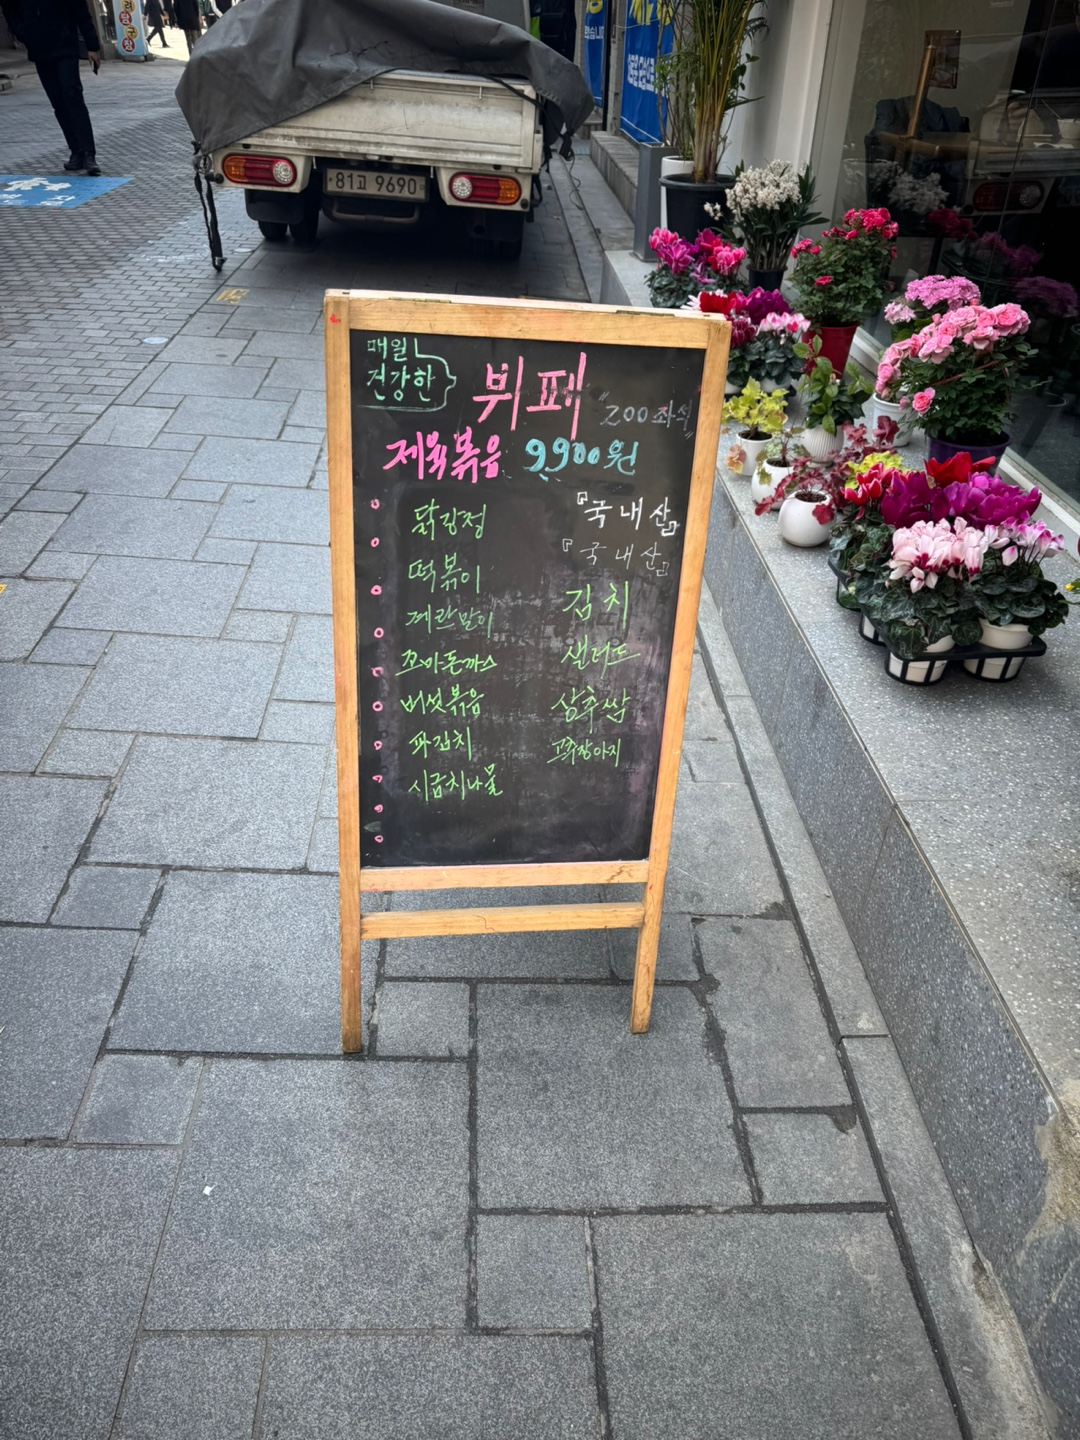 81고 9690
매일
건강한
뷔페
"200좌석"
제육볶음 9,900원
닭강정 『국내산』
떡볶이 『국내산』
계란말이 김치
꼬마돈까스 샐러드
버섯볶음 상추쌈
파김치 고추장아찌
시금치나물